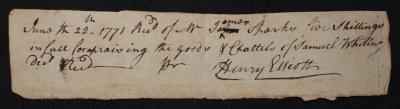 June th 22. 1771 Recd of Mr James Sparks five Shillings
in full for apraising the Goods & Chattels of Samuel Whiting
Decd
Henry Elliott